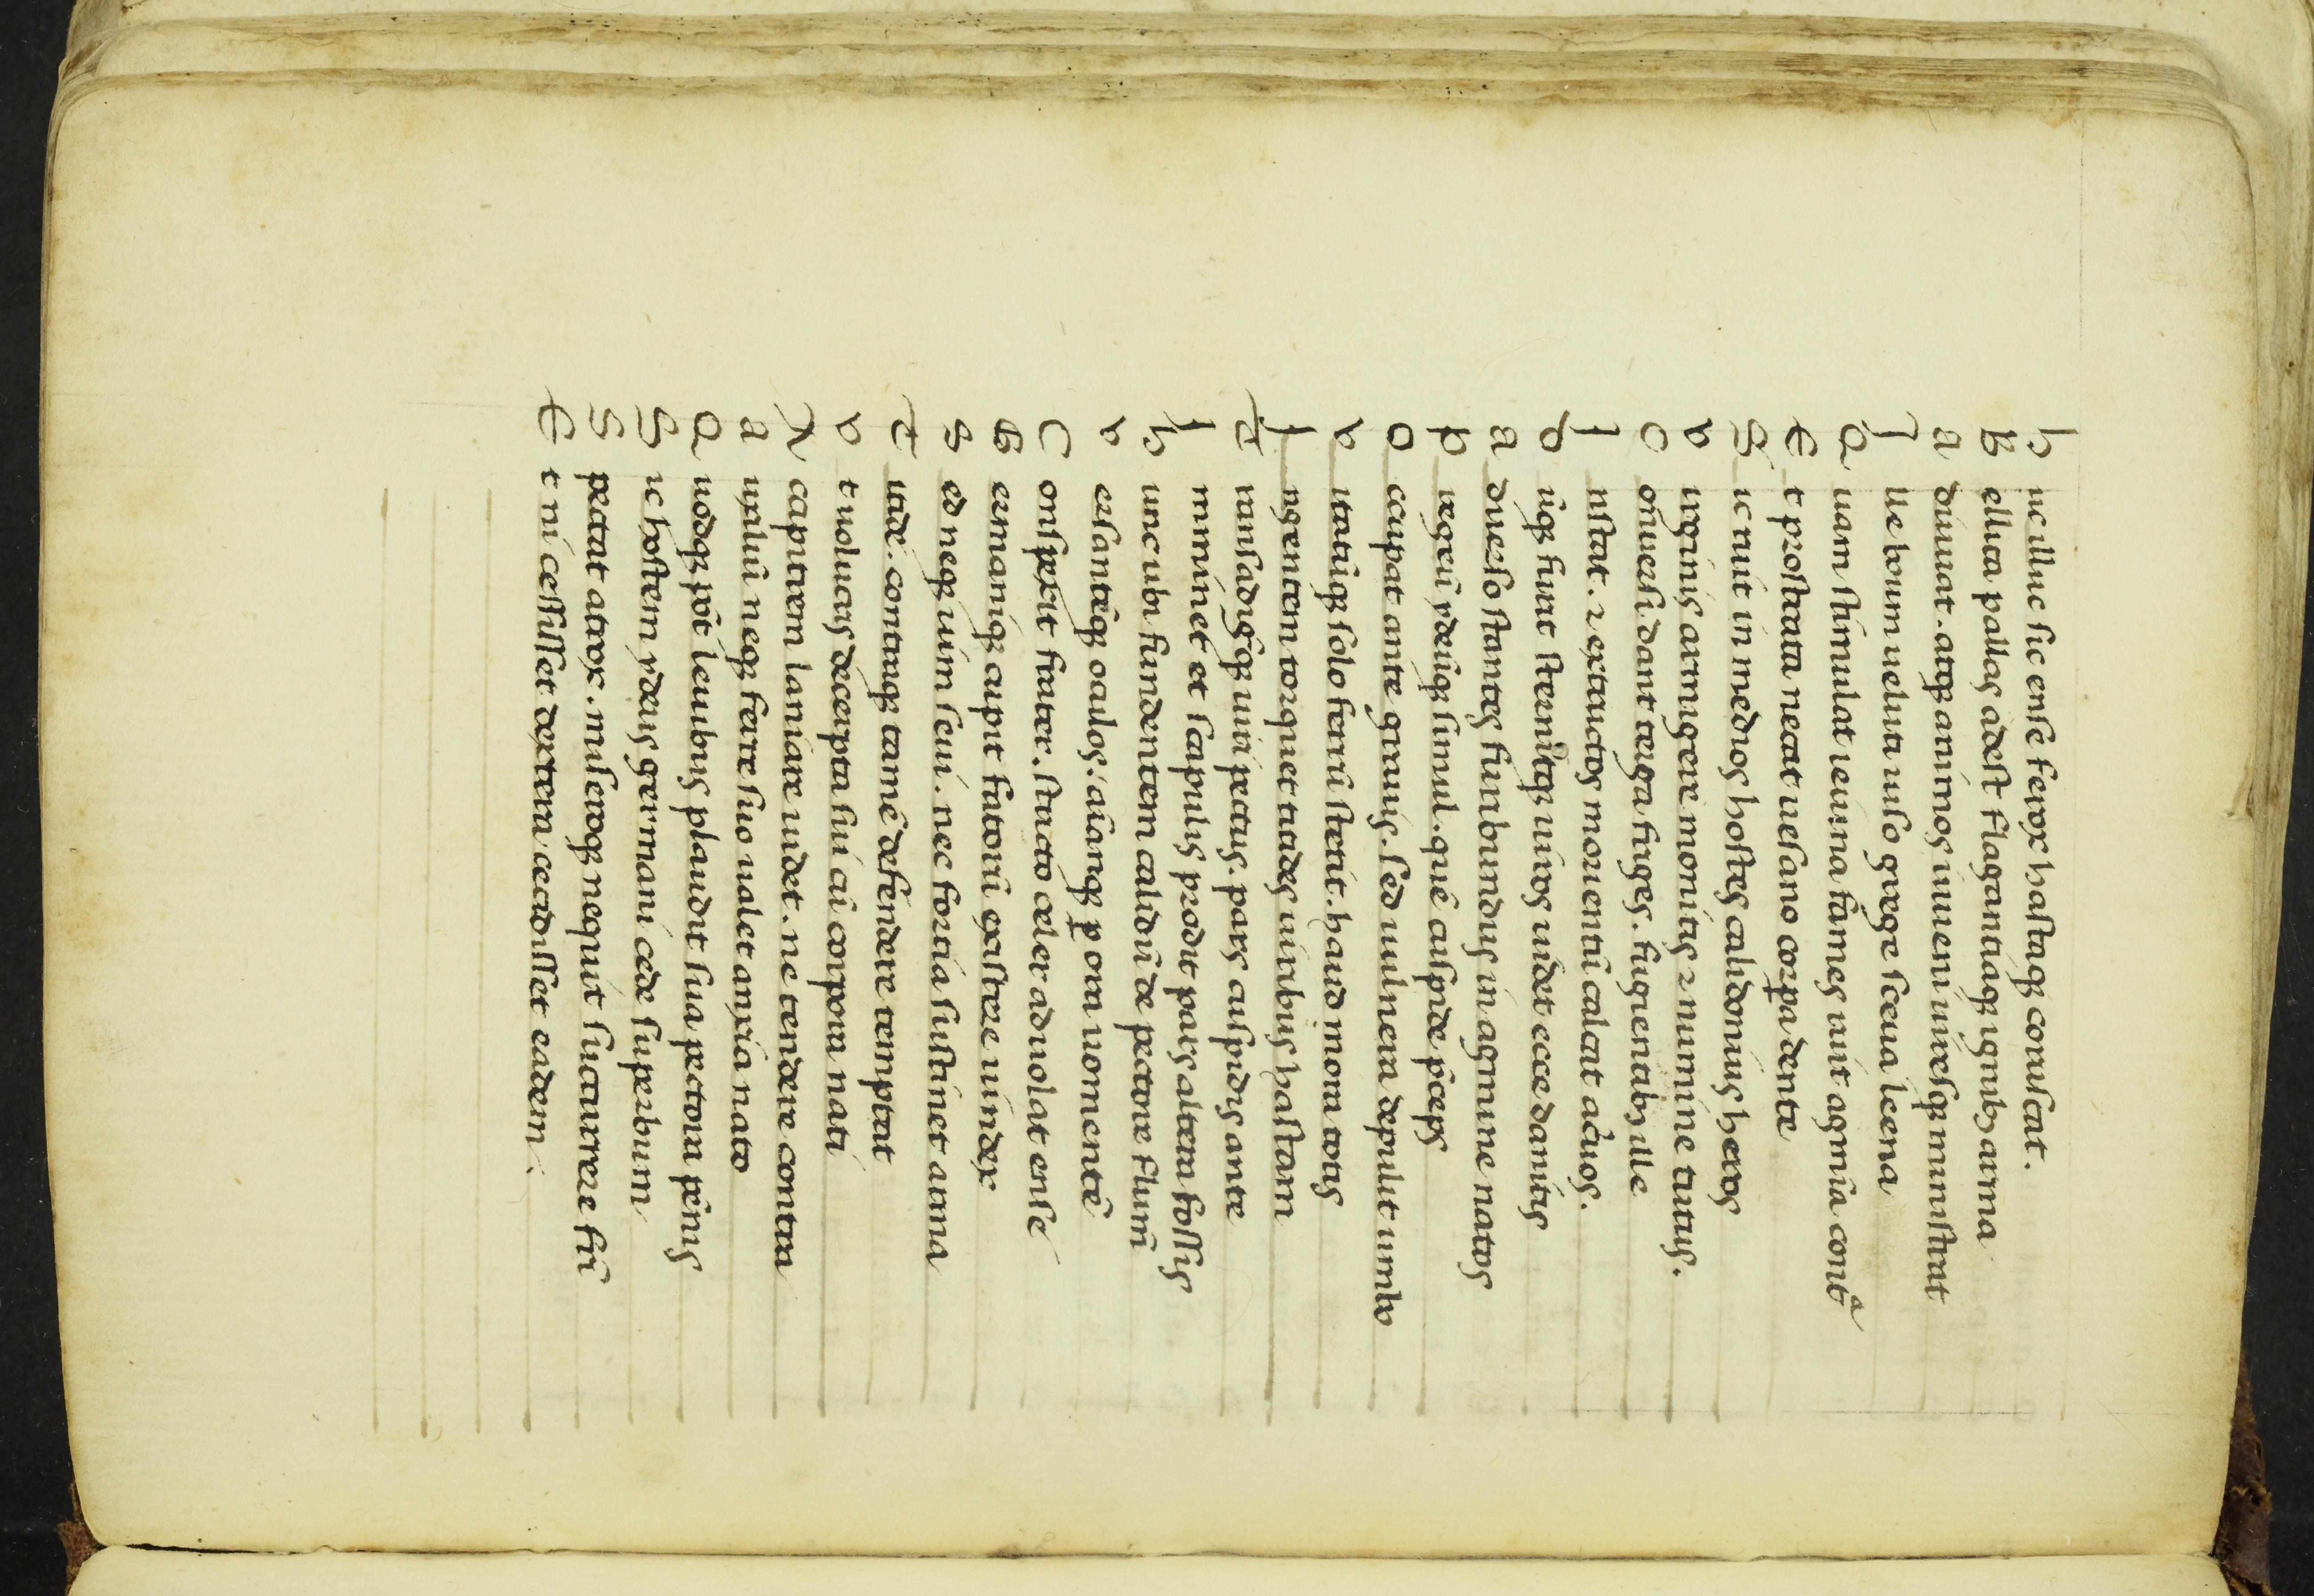 h uc illuc sic ense ferox hastaqꝫ coruscat.
B ellica pallas adest flagrantiaqꝫ ignibꝫ arma
a diuuat. atqꝫ animos iuueni uiresqꝫ ministrat
I lle boum ueluti uiso grege sceua leena
Q uam stimulat ieiuna fames ruit agmīa contᵃ
E t prostrata necat uesano corꝑa dente
S ic ruit in medios hostes calidonius heros
v irginis armigere monitis ⁊ numine tutus.
C ōuersi dant terga friges. fugientibꝫ ille
I nstat. ⁊ extructos morientū calcat acuos.
D ūqꝫ furit sternitqꝫ uiros uidet ecce danitis
a duerso stantes furibundus in agmine natos
p regeū ydeūqꝫ simul. quē cuspide p̄ceps
O ccupat ante grauis. sed uulnera depulit umbo
v itatūqꝫ solo ferrū stetit. haud mora totis
I ngentem torquet titides uiribus hastam
T ransadigꝰqꝫ uiri pectus. pars cuspidis ante
I mminet et scapulis prodit pars altera fossis
h unc ubi fundentem calidū de pectore flumē
v ersantēqꝫ oculos. aīamqꝫ ꝑ ora uomentē
C onspexit frater. stricto celer aduolat ense
G ermaniqꝫ cupit fratorū existere uindex
s ed neqꝫ uim seui. nec fortia sustinet arma
t itide. contraqꝫ tamē defendere temptat
v t uolucris decerpta sui cū corpora nati
A capitrem laniare uidet. ne tendere contra
a uxiliū neqꝫ ferre suo ualet anxia nato
Q uodqꝫ pōt leuibus plaudit sua pectora pēnis
S ic hostem ydeus germani cede superbum
S pectat atrox. miseroqꝫ nequit succurrere frī
E t ni cessisset dextera cecidisset eadem.